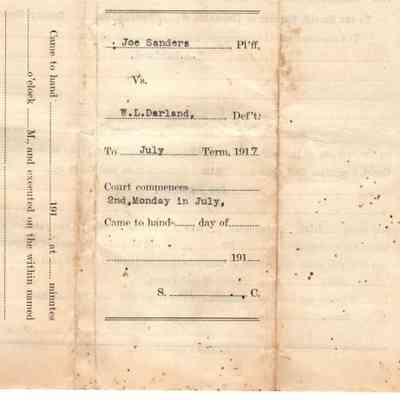 Joe Sanders Pl'ff,
Vs.
W.L.Darland, Def't:
To July Term, 1917
Court commences
2nd,Monday in July,
Came to hand day of
, 191
S. C.
Came to hand 191 , at minutes
o'clock M., and executed on the within named